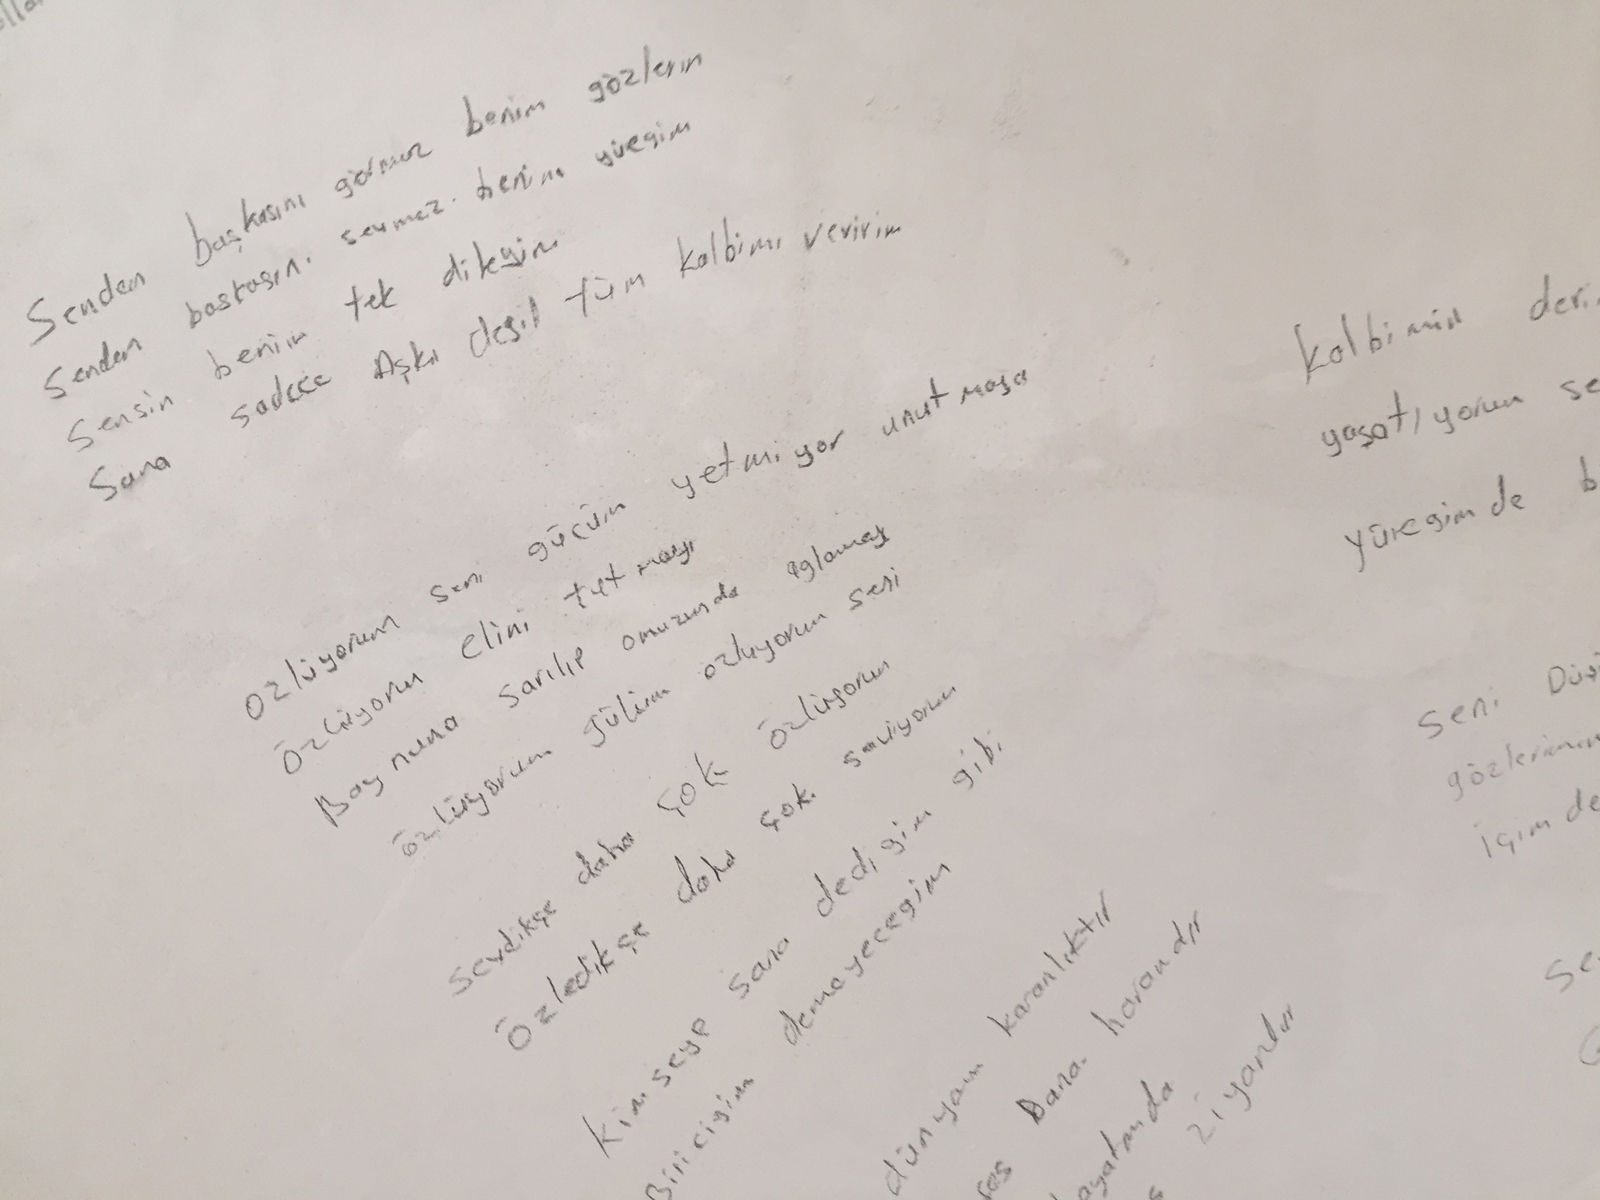 Senden başkasını görmez benim gözlerin
Senden baskasını sevmez benim yüregim
Sensin benim tek dilegim
Sana sadece Aşkı degil tüm kalbimi veririm
Özlüyorum seni gücüm yetmiyor unutmaga
Özlüyorum elini tutmayı
Boynuna sarılıp omuzunda aglamayı
Özlüyorum gülüm özlüyorum seni
Sevdikçe daha çok özlüyorum
Özledikçe daha çok seviyorum
Kimseye sana dedigim gibi
Biricigim demeyecegim
dünyam karanlıktır
Bana haramdır
ziyandır
Kalbimin
yaşatıyorum
Yüregimde
Seni
gözlerimin
İçimde